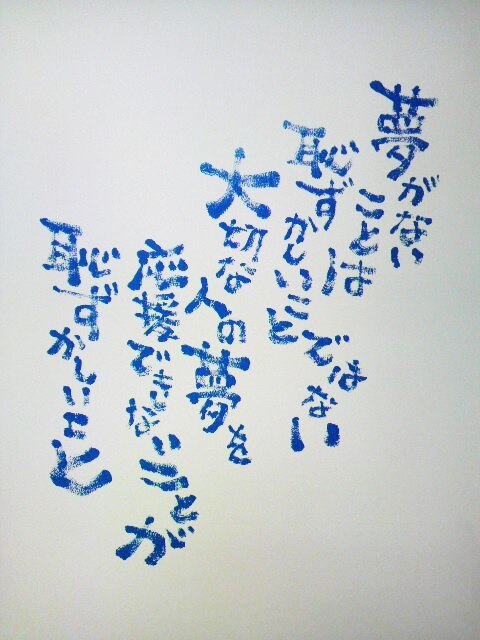 夢がない
ことは
恥ずかしいこと
ではない
大切な
人の夢を
応援できないことが
恥ずかしいこと